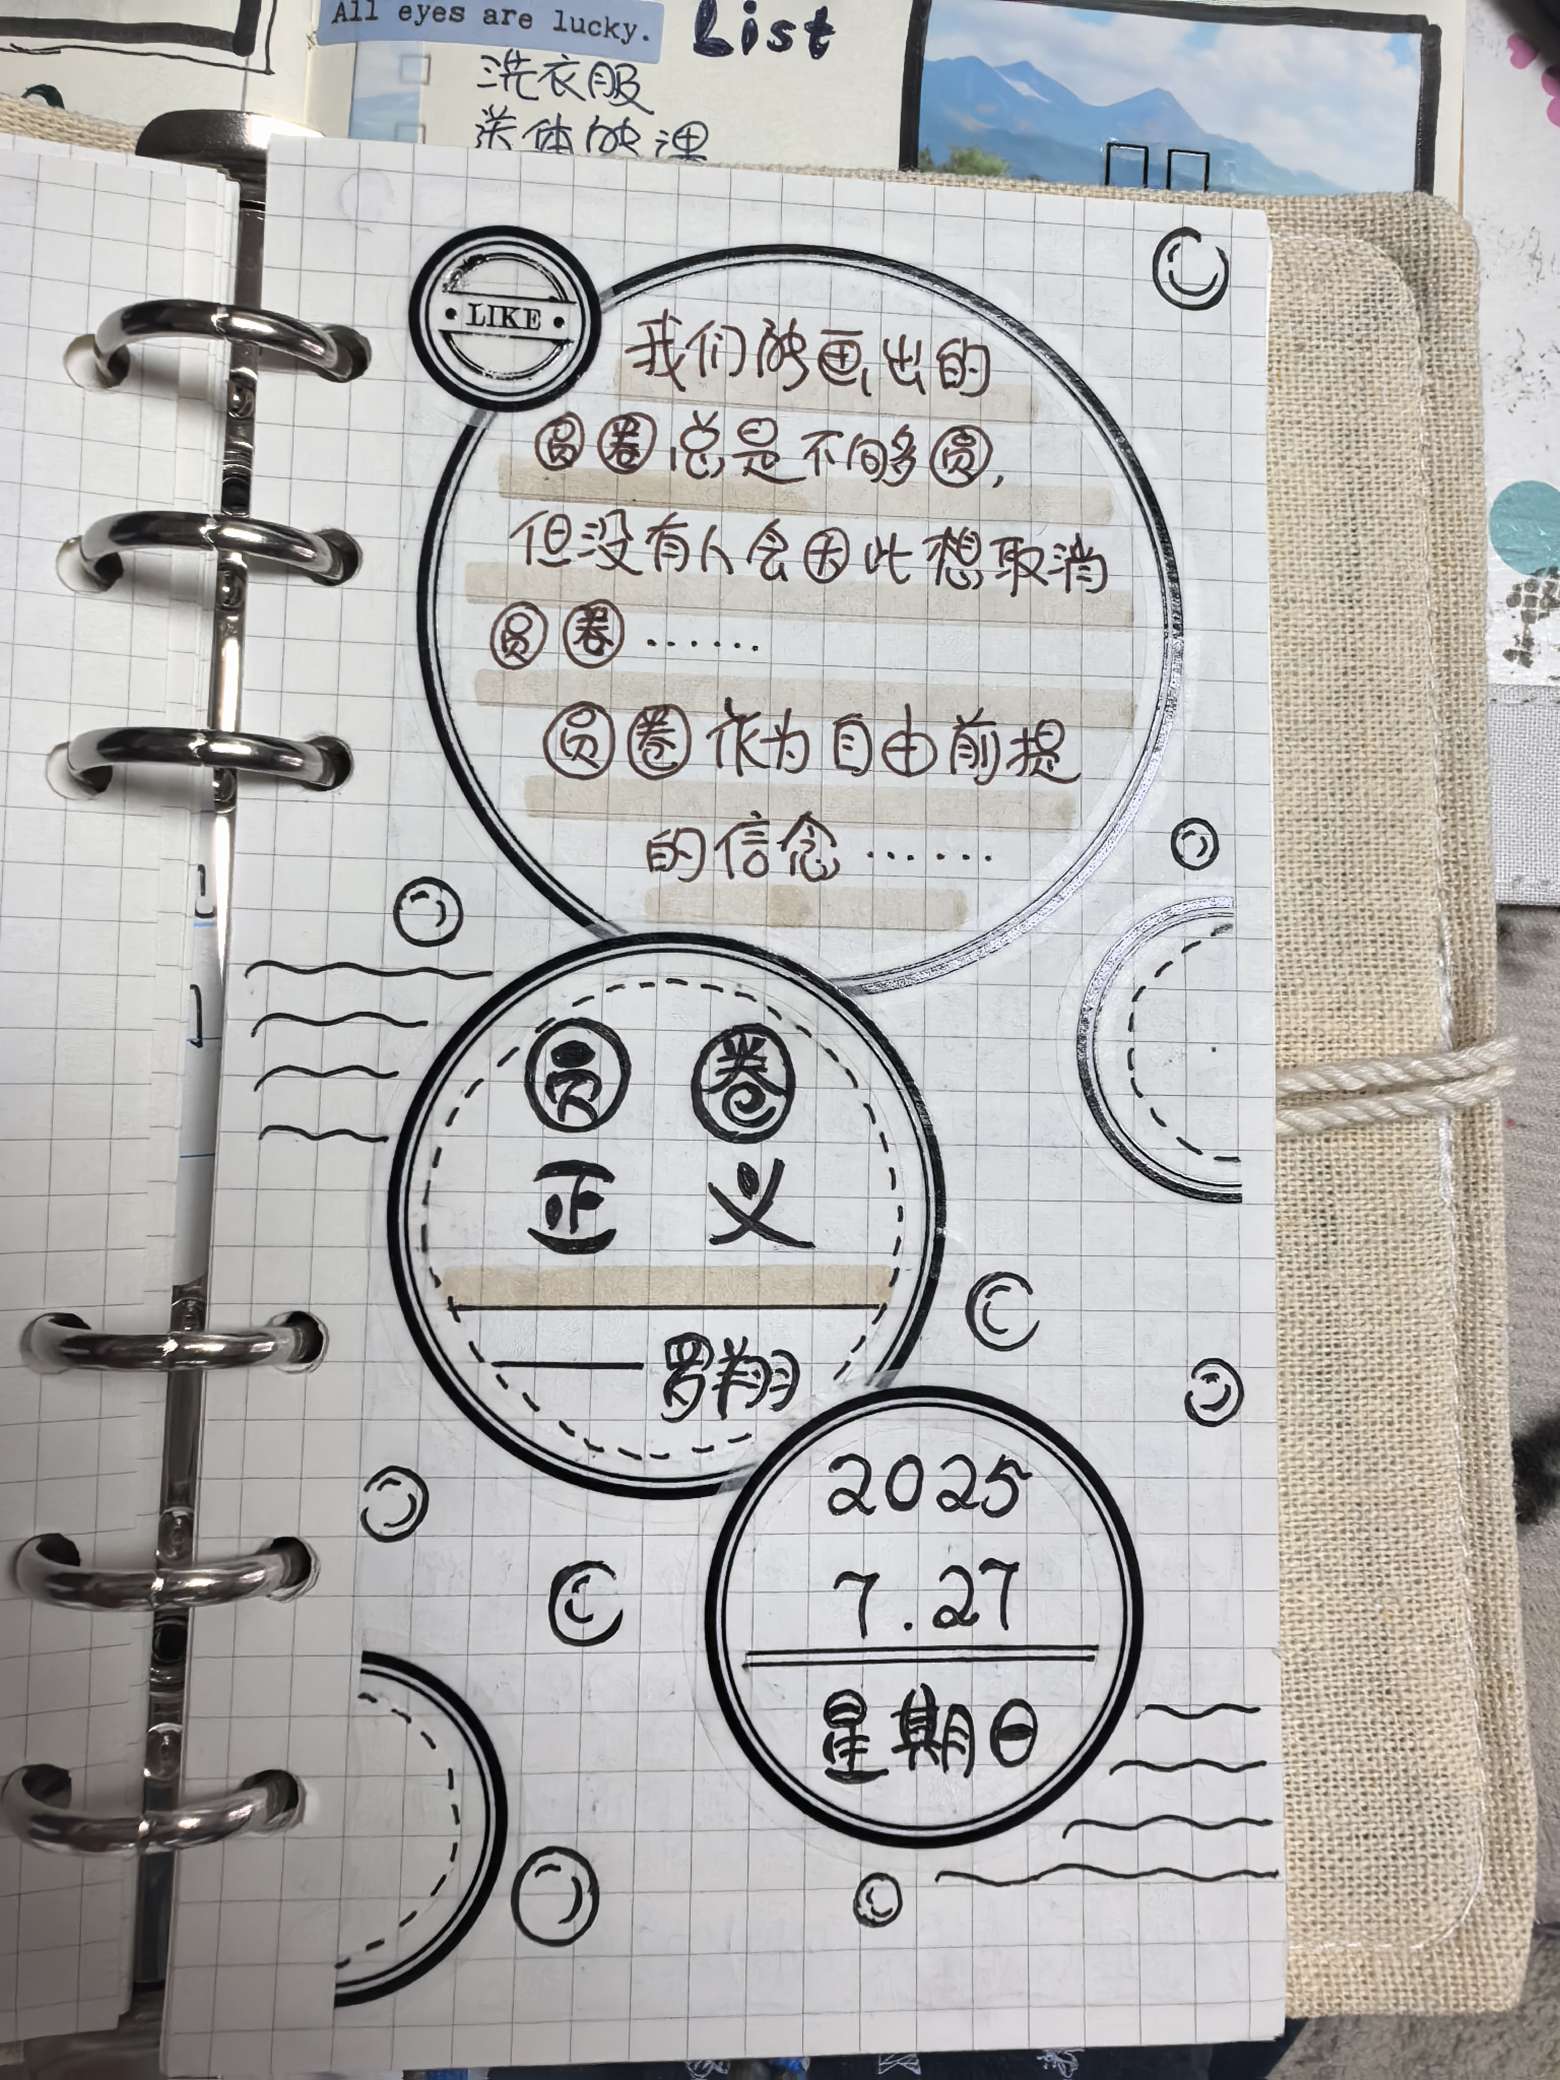 All eyes are lucky.
List
洗衣服
LIKE
我们能画出的
圆圈总是不够圆,
但没有人会因此想取消
圆圈……
圆圈作为自由前提
的信念……
圆圈
正义
——罗翔
2025
7.27
星期日